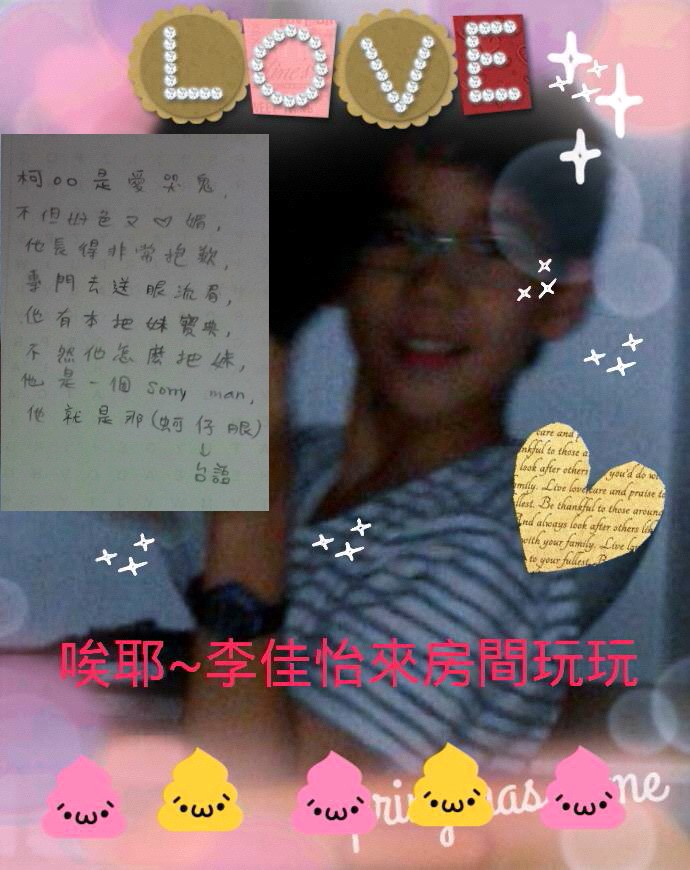 LOVE
柯OO是愛哭鬼,
不但好色又♡媚,
他長得非常抱歉,
專門去送眼流眉,
他有本把妹寶典,
不然他怎麼把妹,
他是一個sorry man,
他就是那(蚵仔眼)
↓
台語
care and
nkful to those a
look after others you'd do w
mily. Live love care and praise to
llest. Be thankful to those around
And always look after others lik
with your family. Live l
to your fullest. B
唉耶~李佳怡來房間玩玩
pring has me